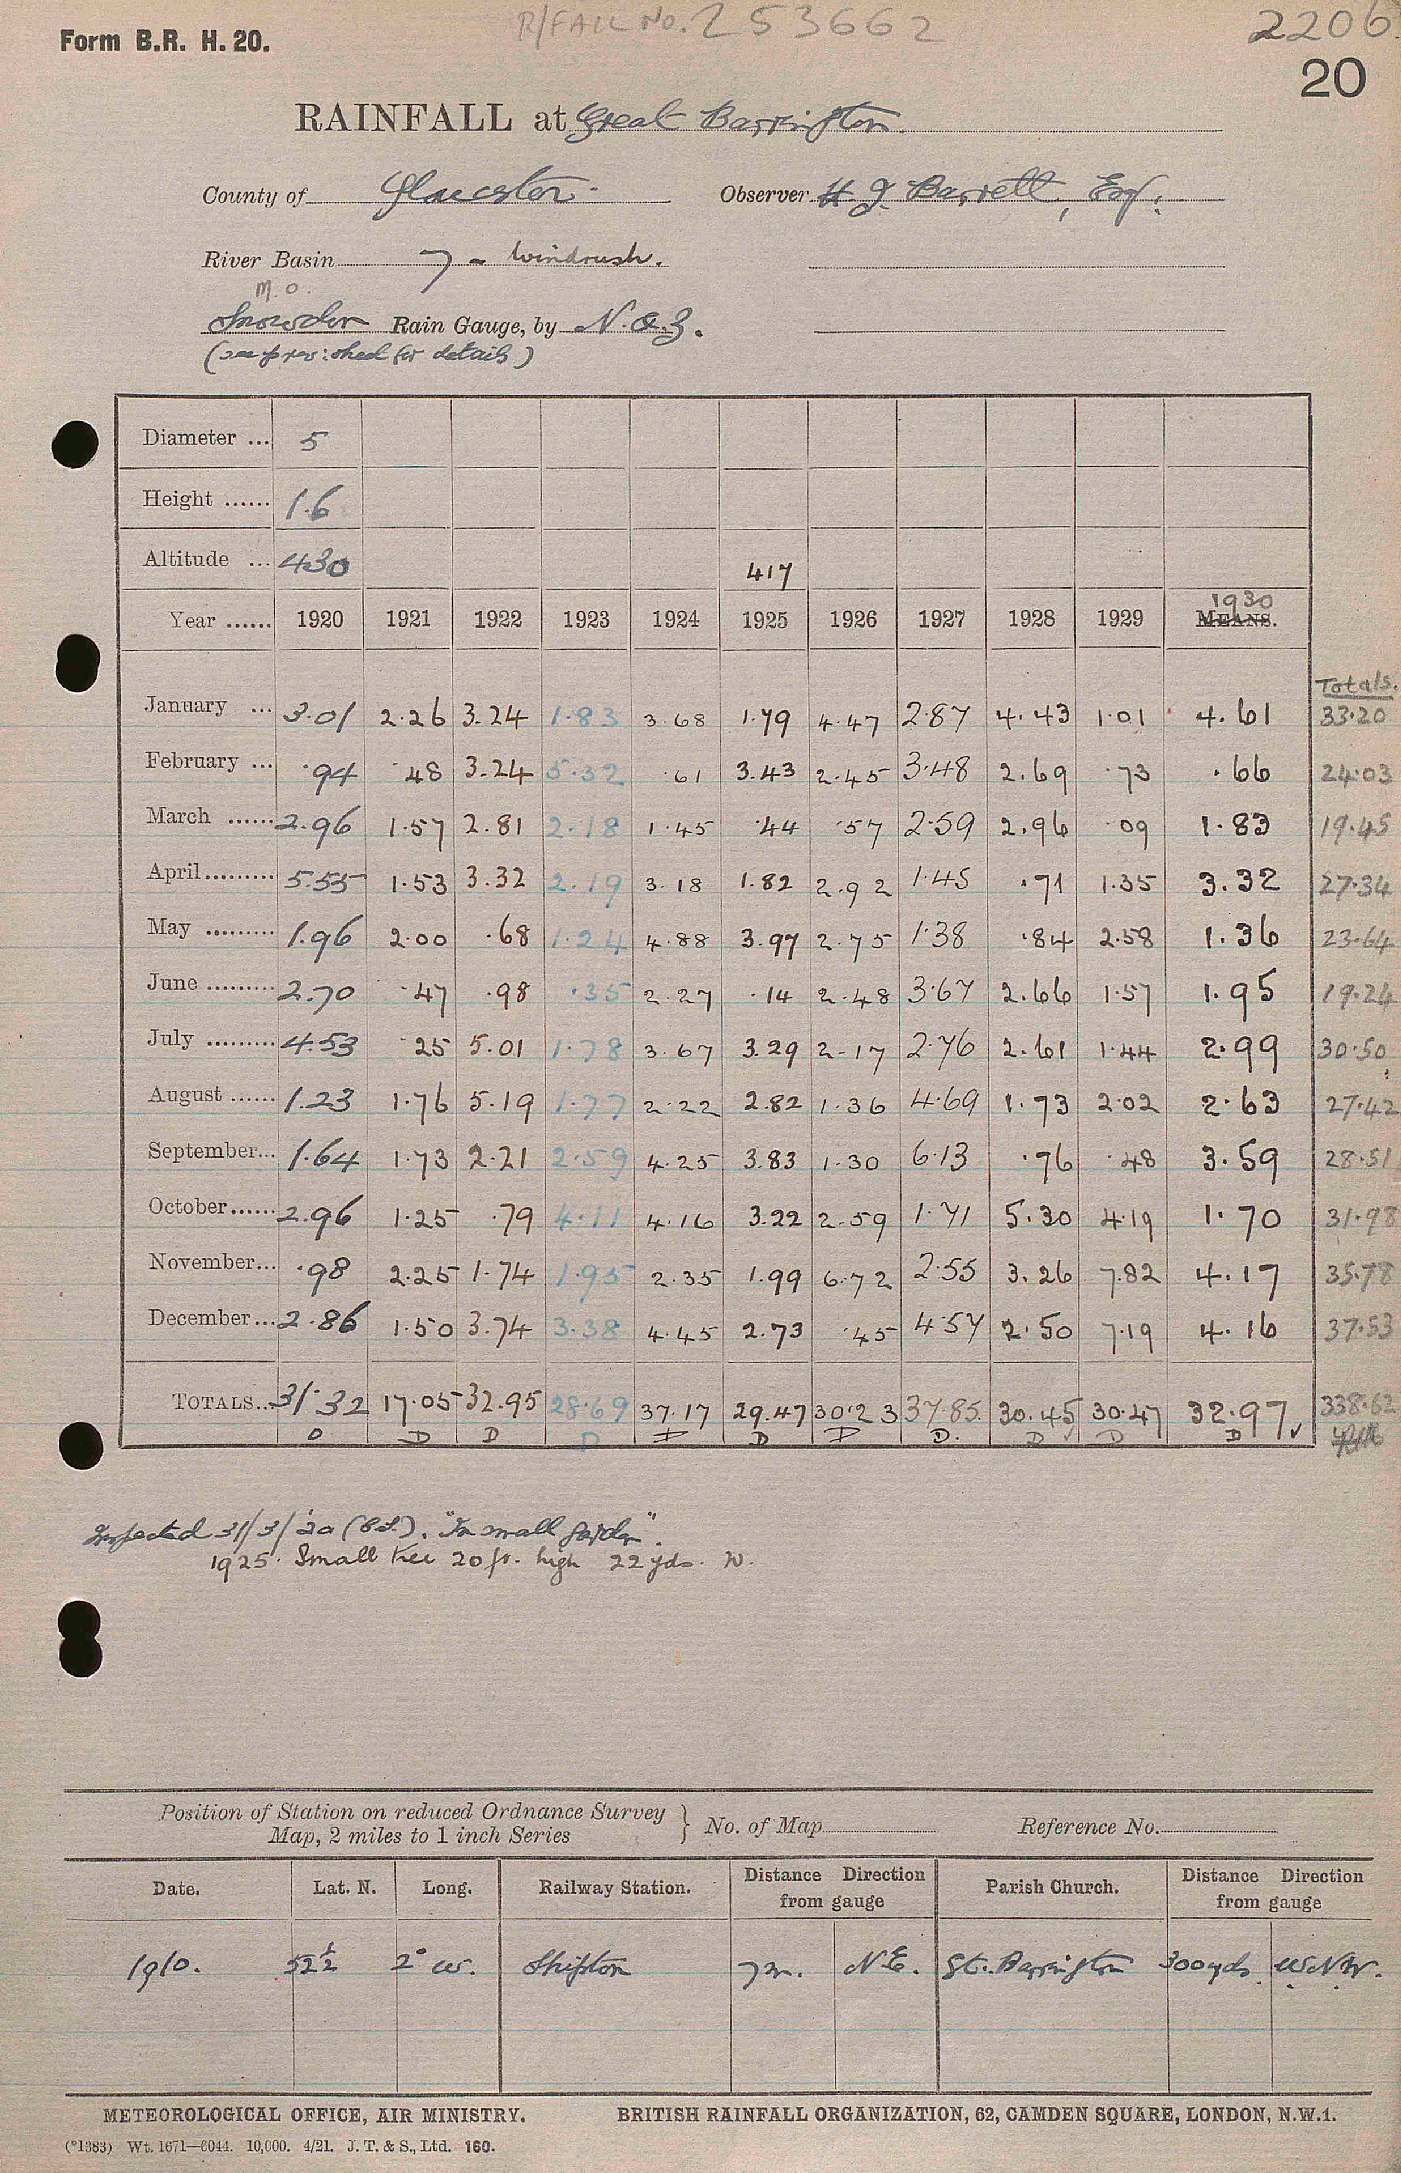 R/FALL NO. 253662
2206
Form B.R. H. 20.
20
RAINFALL at Great Barrington.
County of Gloucester. Observer H. J. Barrett, Esq.
River Basin 7 - Windrush.
M.O.
Snowdon Rain Gauge, by N. & Z.
(see prev: sheet for details)
Diameter ... 5
Height ...... 1.6
Altitude ... 430 417
1930
Year ...... 1920 1921 1922 1923 1924 1925 1926 1927 1928 1929 MEANS.
Totals.
January ... 3.01 2.26 3.24 1.83 3.68 1.79 4.47 2.87 4.43 1.01 4.61 33.20
February ... .94 .48 3.24 5.32 .61 3.43 2.45 3.48 2.69 .73 .66 24.03
March ...... 2.96 1.57 2.81 2.18 1.45 .44 .57 2.59 2.96 .09 1.83 19.45
April......... 5.55 1.53 3.32 2.19 3.18 1.82 2.92 1.45 .71 1.35 3.32 27.34
May ......... 1.96 2.00 .68 1.24 4.88 3.97 2.75 1.38 .84 2.58 1.36 23.64
June ......... 2.70 .47 .98 .35 2.27 .14 2.48 3.67 2.66 1.57 1.95 19.24
July ......... 4.53 .25 5.01 1.78 3.67 3.29 2.17 2.76 2.61 1.44 2.99 30.50
August ...... 1.23 1.76 5.19 1.77 2.22 2.82 1.36 4.69 1.73 2.02 2.63 27.42
September... 1.64 1.73 2.21 2.59 4.25 3.83 1.30 6.13 .76 .48 3.59 28.51
October...... 2.96 1.25 .79 4.11 4.16 3.22 2.59 1.71 5.30 4.19 1.70 31.98
November... .98 2.25 1.74 1.95 2.35 1.99 6.72 2.55 3.26 7.82 4.17 35.78
December... 2.86 1.50 3.74 3.38 4.45 2.73 .45 4.57 2.50 7.19 4.16 37.53
TOTALS... 31.32 17.05 32.95 28.69 37.17 29.47 30.23 37.85 30.45 30.47 32.97 ✓ 338.62
D D D D D D D D. D D D
Inspected 31/3/'20 (C.S.). "In small garden".
1925. Small tree 20 ft. high 22 yds. W.
Position of Station on reduced Ordnance Survey
Map, 2 miles to 1 inch Series } No. of Map Reference No.
Date. Lat. N. Long. Railway Station. Distance Direction from gauge Parish Church. Distance Direction from gauge
1910. 52½ 2° W. Shipton 7m. N.E. Gt. Barrington 300yds. W.N.W.
METEOROLOGICAL OFFICE, AIR MINISTRY. BRITISH RAINFALL ORGANIZATION, 62, CAMDEN SQUARE, LONDON, N.W.1.
(*1383) Wt. 1671—6044. 10,000. 4/21. J. T. & S., Ltd. 160.